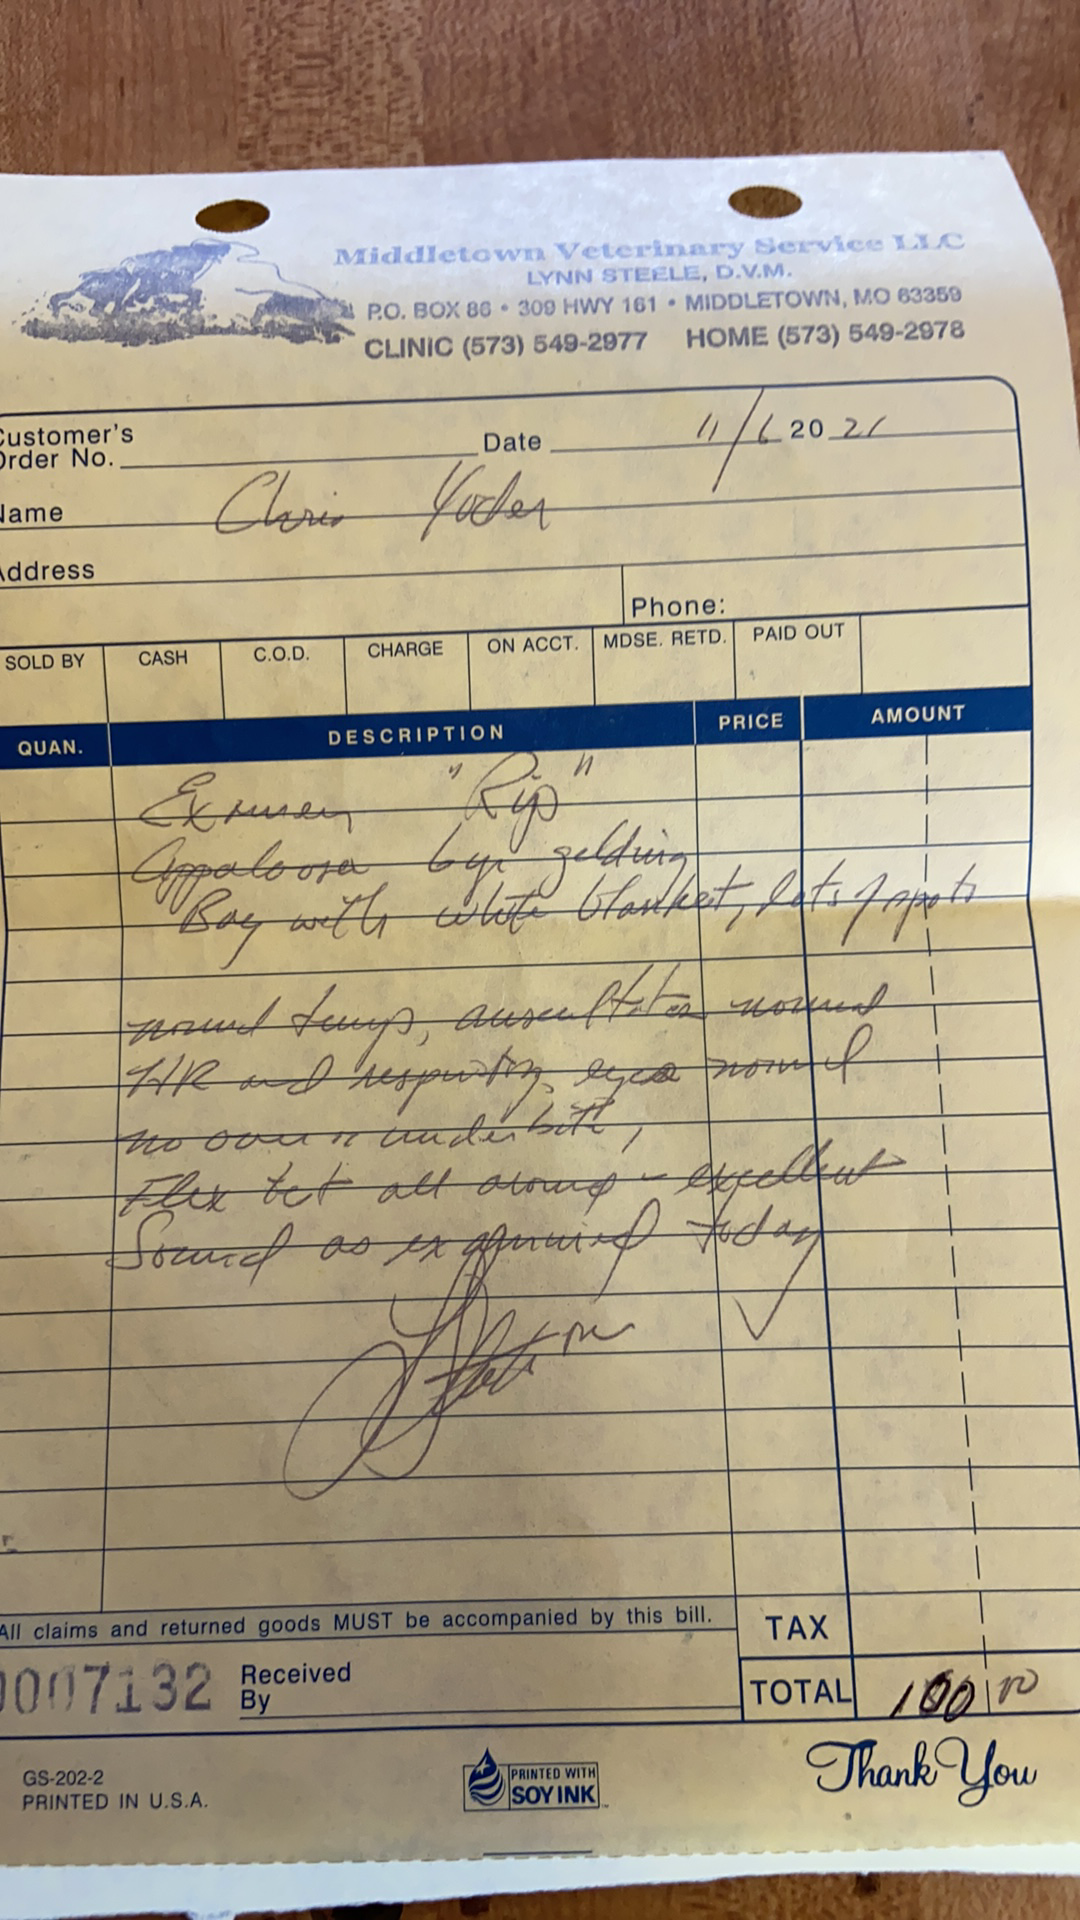 Middletown Veterinary Service LLC
LYNN STEELE, D.V.M.
P.O. BOX 86 • 309 HWY 161 • MIDDLETOWN, MO 63359
CLINIC (573) 549-2977 HOME (573) 549-2978
Customer's
Order No. Date 11/6 20 21
Name Chris Yoder
Address
Phone:
SOLD BY CASH C.O.D. CHARGE ON ACCT. MDSE. RETD. PAID OUT
QUAN. DESCRIPTION PRICE AMOUNT
"Rip"
Appaloosa 6yr gelding
Bay with white blanket, lots of spots
normal temp, normal
HR and eyes normal
no over underbite,
Flex all around - excellent
Sound as examined today
All claims and returned goods MUST be accompanied by this bill.
TAX
0007132 Received
By
TOTAL 100 00
Thank You
GS-202-2
PRINTED IN U.S.A.
PRINTED WITH
SOY INK